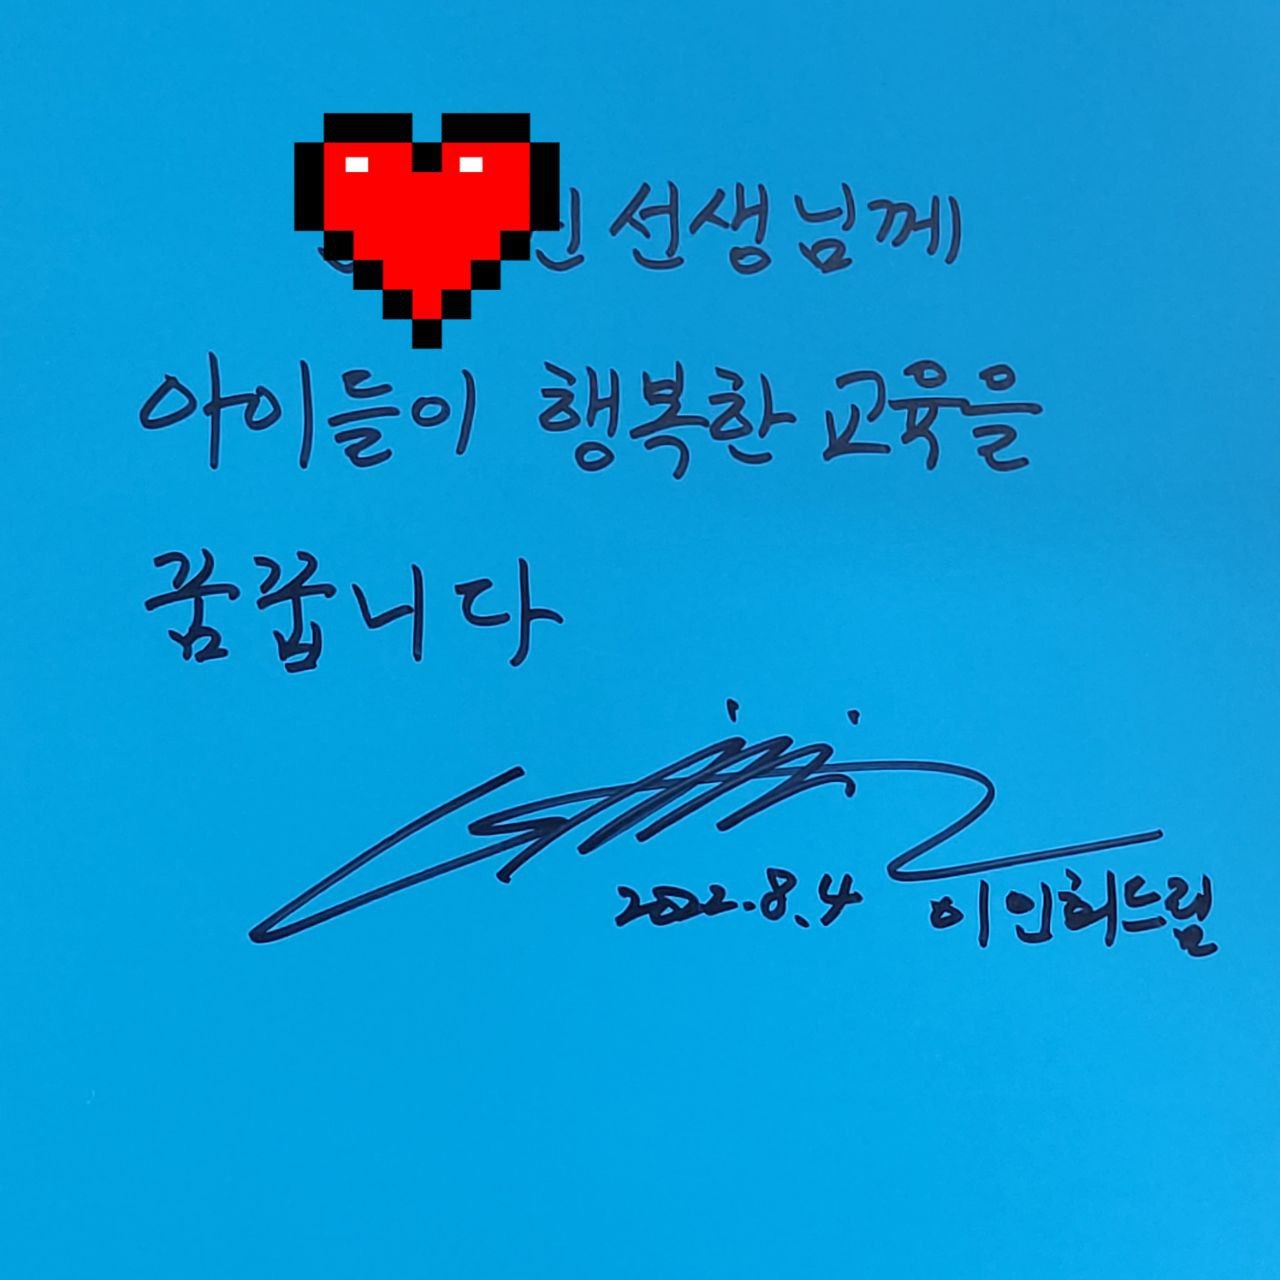 선생님께
아이들이 행복한 교육을
꿈꿉니다
2022.8.4 이인희드림